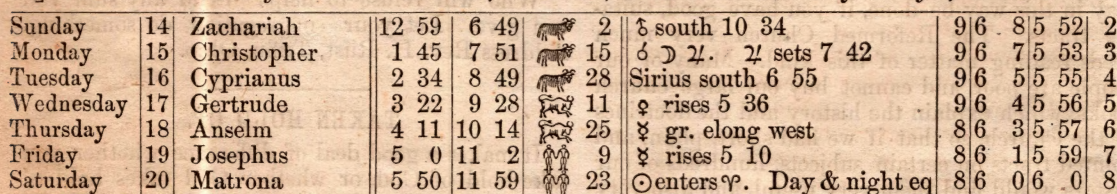 Sunday 14 Zachariah 12 59 6 49 2 south 10 34 9 6 8 5 52 2
Monday 15 Christopher 1 45 7 51 15 ☌ ☽ ♃. ♃ sets 7 42 9 6 7 5 53 3
Tuesday 16 Cyprianus 2 34 8 49 28 Sirius south 6 55 9 6 5 5 55 4
Wednesday 17 Gertrude 3 22 9 28 11 ♀ rises 5 36 9 6 4 5 56 5
Thursday 18 Anselm 4 11 10 14 25 ☿ gr. elong west 8 6 3 5 57 6
Friday 19 Josephus 5 0 11 2 9 ☿ rises 5 10 8 6 1 5 59 7
Saturday 20 Matrona 5 50 11 59 23 ☉ enters ♈. Day & night eq 8 6 0 6 0 8